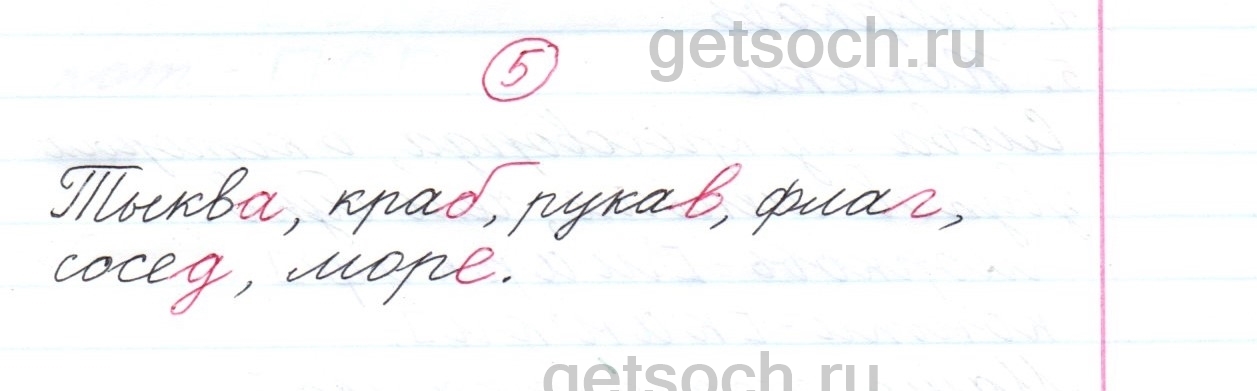 getsoch.ru
5
Тыква, краб, рукав, флаг,
сосед, море.
getsoch.ru